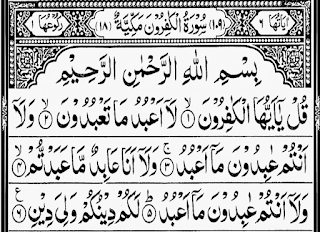 اٰیَاتُهَا ۶ (۱۰۹) سُوْرَةُ الْکٰفِرُوْنَ مَکِّیَّةٌ (۱۸) رُکُوْعُهَا
بِسْمِ اللّٰهِ الرَّحْمٰنِ الرَّحِیْمِ
قُلْ یٰۤاَیُّهَا الْکٰفِرُوْنَ ۙ﴿۱﴾ لَاۤ اَعْبُدُ مَا تَعْبُدُوْنَ ۙ﴿۲﴾ وَلَاۤ
اَنْتُمْ عٰبِدُوْنَ مَاۤ اَعْبُدُ ۚ﴿۳﴾ وَلَاۤ اَنَا عَابِدٌ مَّا عَبَدْتُّمْ ۙ﴿۴﴾
وَلَاۤ اَنْتُمْ عٰبِدُوْنَ مَاۤ اَعْبُدُ ؕ﴿۵﴾ لَکُمْ دِیْنُکُمْ وَلِیَ دِیْنِ ﴿۶﴾